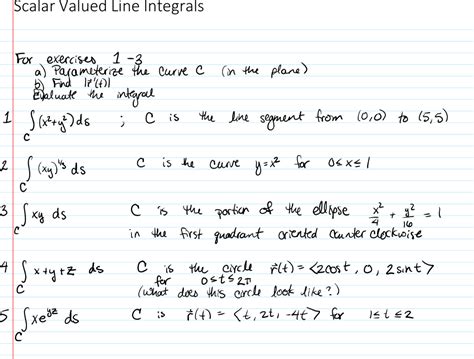 Scalar Valued Line Integrals
For exercises 1-3
a) Parameterize the curve C (in the plane)
b) Find |r'(t)|
Evaluate the integral
1 ∫_C (x²+y²) ds ; C is the line segment from (0,0) to (5,5)
2 ∫_C (xy)^{1/3} ds C is the curve y=x² for 0≤x≤1
3 ∫_C xy ds C is the portion of the ellipse x²/4 + y²/16 = 1
in the first quadrant oriented counter clockwise
4 ∫_C x+y+z ds C is the circle r⃗(t) = <2cost, 0, 2sint>
for 0≤t≤2π
(what does this circle look like?)
5 ∫_C xe^{yz} ds C is r⃗(t) = <t, 2t, -4t> for 1≤t≤2